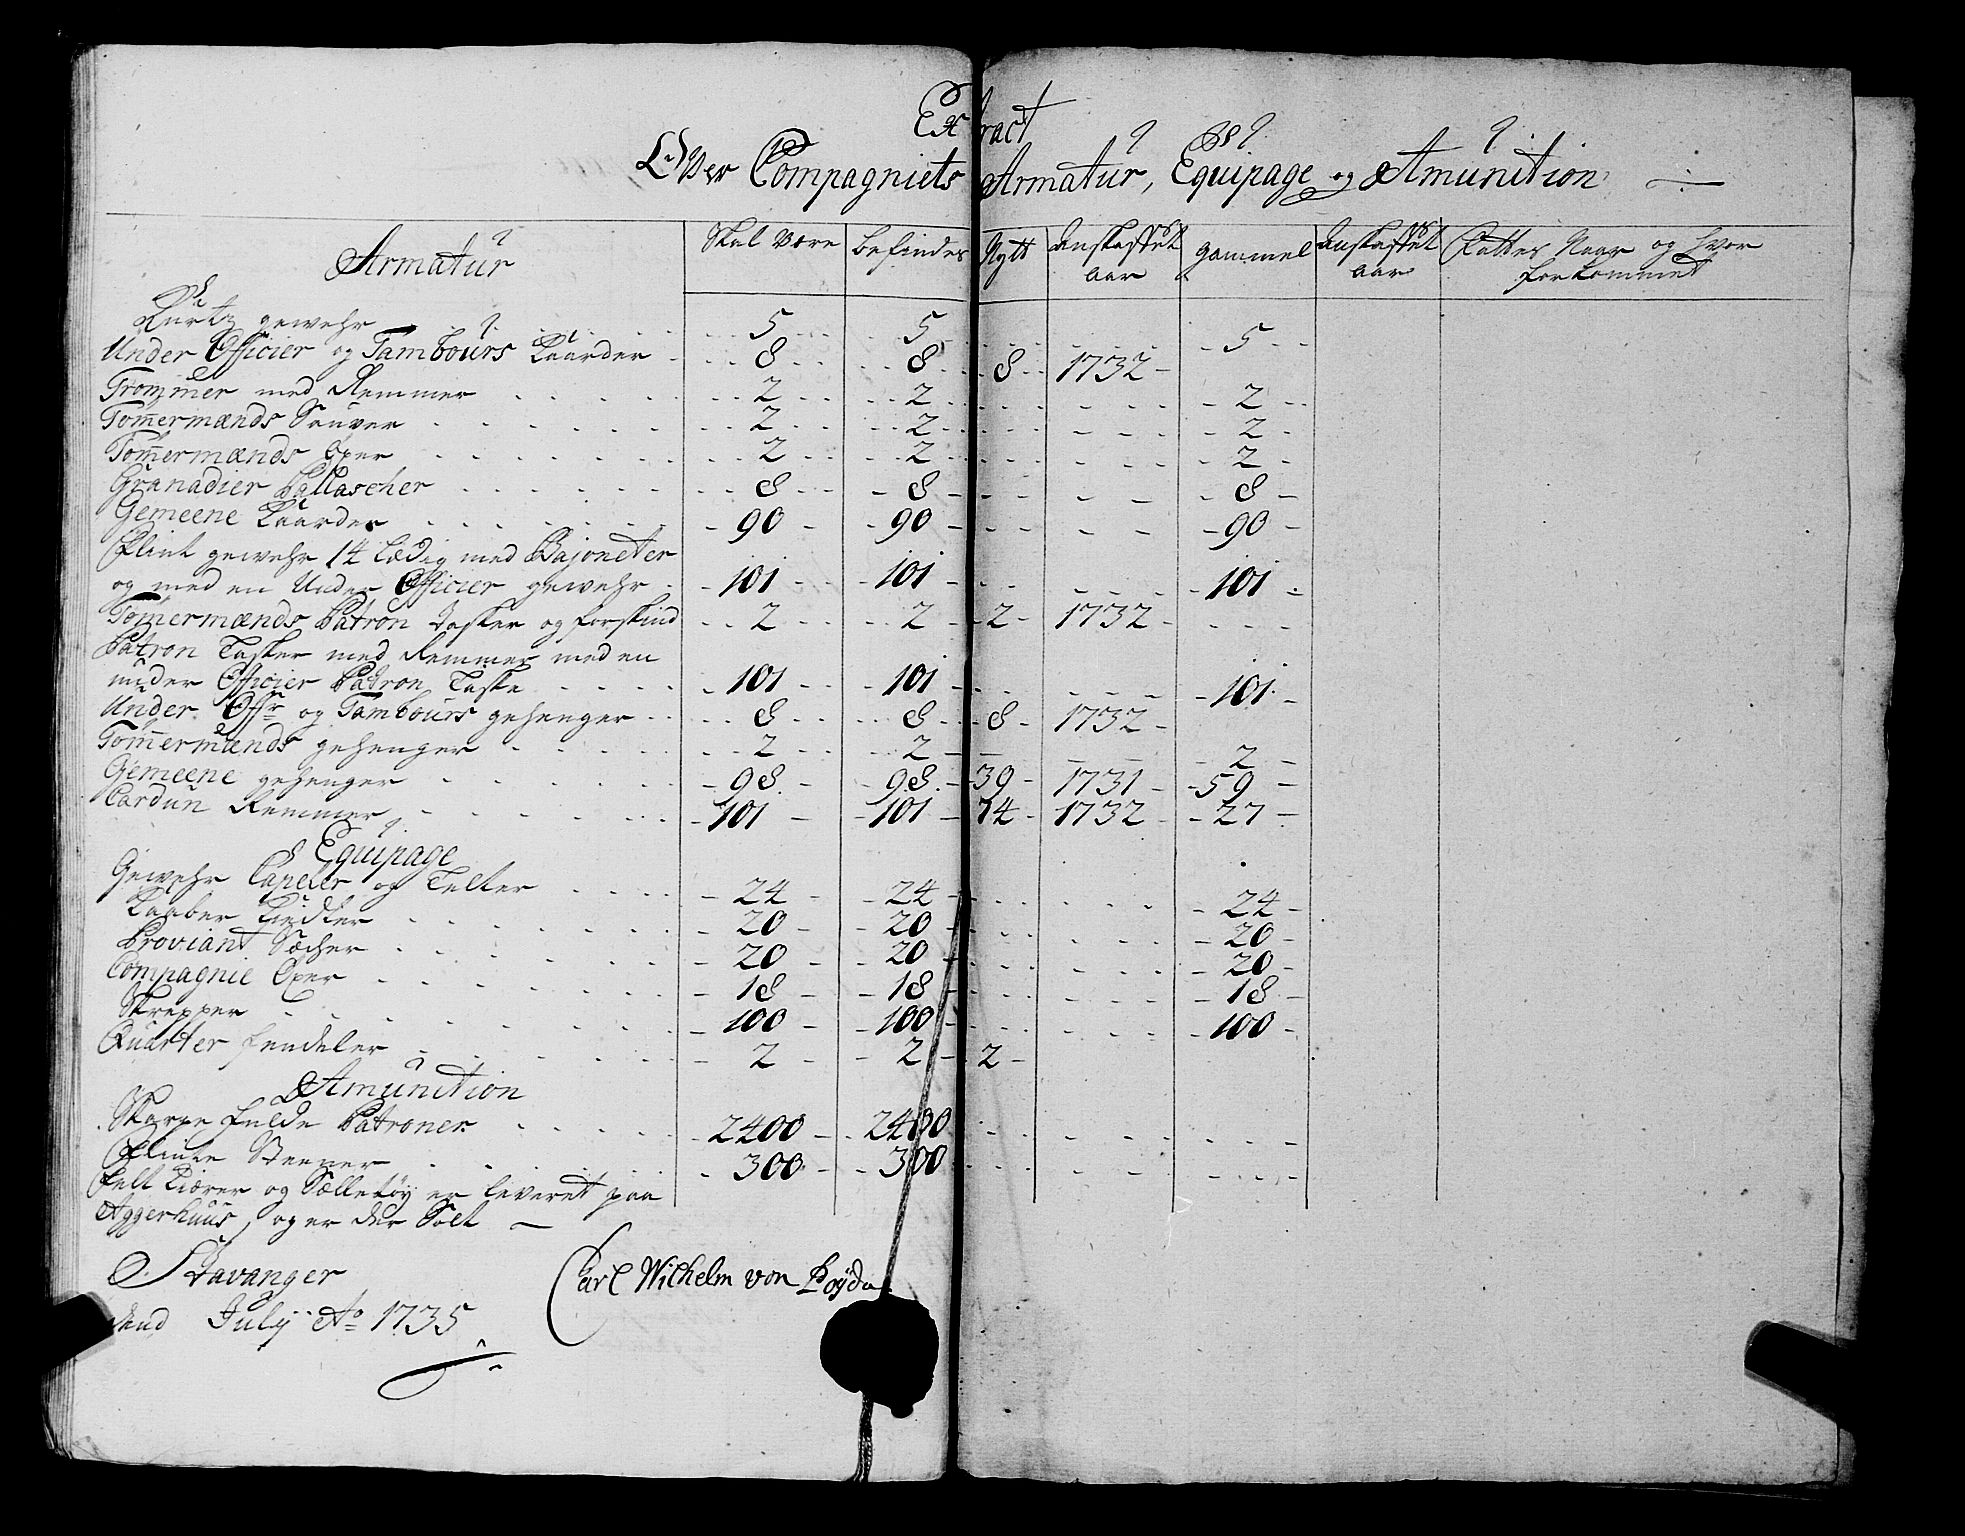 Extract
Over Compagniets Armatur, Equipage og Amunition
Armatur | Skal være | befindes | Nytt | anskaffet aar | gammel | anskaffet aar | fattes Naar og hvor forkommet
Kurtz gewehr | 5 | 5 | | | 5
Under Officier og Tambours Kaarder | 8 | 8 | 8 | 1732
Trommer med Remmer | 2 | 2 | | | 2
Tom̅ermænds Sauver | 2 | 2 | | | 2
Tom̅ermænds Øxer | 2 | 2 | | | 2
Granadier Pallascher | 8 | 8 | | | 8
Gemeene Kaarder | 90 | 90 | | | 90
Flint gewehr 14 lødig med Bajoneter
og med en Under Officier gewehr | 101 | 101 | | | 101
Tom̅ermænds Patron Tasker og forskind | 2 | 2 | 2 | 1732
Patron Tasker med Remmer med en
under Officier Patron Taske | 101 | 101 | | | 101
Under Offr og Tambours gehenger | 8 | 8 | 8 | 1732
Tom̅ermænds gehenger | 2 | 2 | | | 2
Gemeene gehenger | 98 | 98 | 39 | 1731 | 59
Cardun Remmer | 101 | 101 | 74 | 1732 | 27
Equipage
Gewehr Capeler og Telter | 24 | 24 | | | 24
Kaaber Kiedler | 20 | 20 | | | 20
Proviant Sæcher | 20 | 20 | | | 20
Compagnie Øxer | 18 | 18 | | | 18
Skrepper | 100 | 100 | | | 100
Quarter fendeler | 2 | 2 | 2
Amunition
Skarpe fulde Patroner | 2400 | 2400
Flinte Steener | 300 | 300
Felt Kiærer og Sælletøy er leveret paa
Aggerhuus, og er der Solt
Stavanger
dend July Ao 1735
Carl Wilhelm von